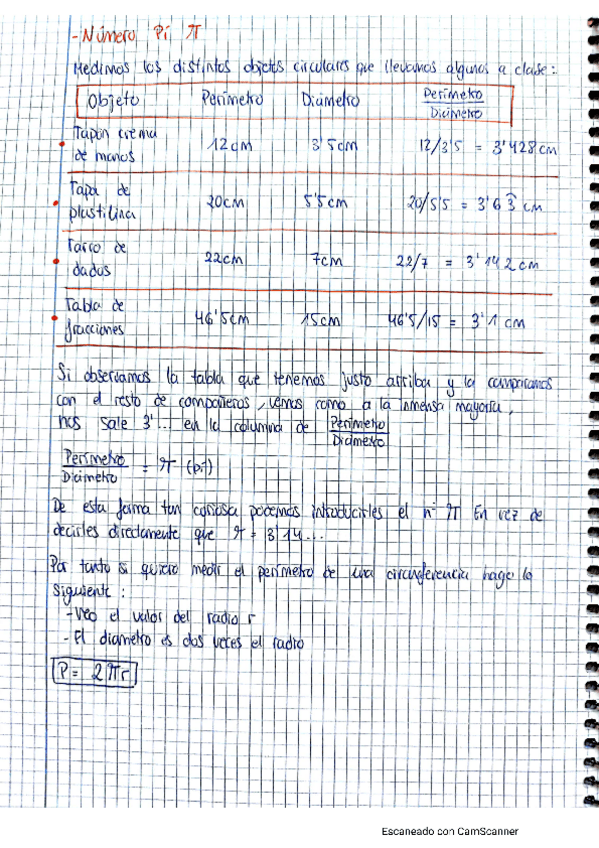 - Número Pi π
Medimos los distintos objetos circulares que llevamos algunos a clase:
Objeto Perímetro Diámetro Perímetro
Diámetro
Tapón crema
de manos 12cm 3'5cm 12/3'5 = 3'428 cm
Tapa de
plastilina 20cm 5'5cm 20/5'5 = 3'63 cm
Tarro de
dados 22cm 7cm 22/7 = 3'142 cm
Tabla de
fracciones 46'5cm 15cm 46'5/15 = 3'1 cm
Si observamos la tabla que tenemos justo arriba y la comparamos
con el resto de compañeros, vemos como a la inmensa mayoría,
nos sale 3'... en la columna de Perímetro
Diámetro
Perímetro
Diámetro = π (pi)
De esta forma tan curiosa podemos introducirles el nº π En vez de
decirles directamente que π = 3'14...
Por tanto si quiero medir el perímetro de una circunferencia hago lo
siguiente:
- Veo el valor del radio r
- El diametro es dos veces el radio
P = 2πr
Escaneado con CamScanner